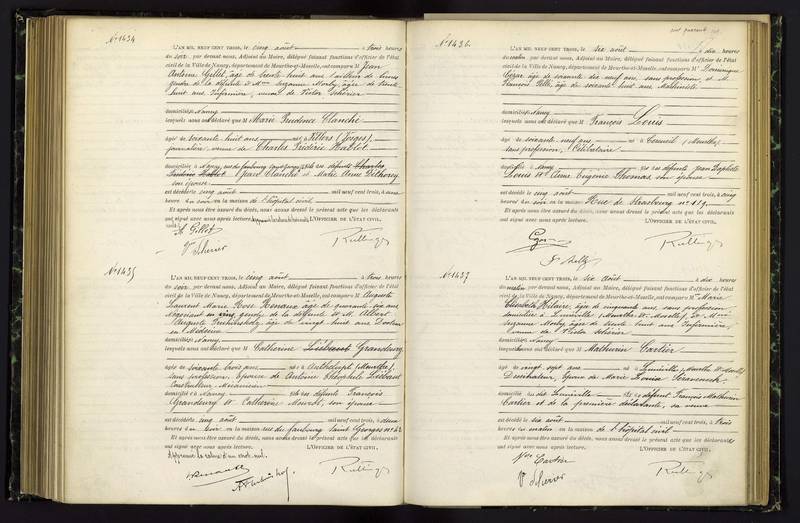 N° 1434
L'AN MIL NEUF CENT TROIS, le cinq août à trois heures
du soir par devant nous, Adjoint au Maire, délégué faisant fonctions d'officier de l'état
civil de la Ville de Nancy, département de Meurthe-et-Moselle, ont comparu M Jean
Antoine Gillet, âgé de trente huit ans
gendre de la défunte et Mme Suzanne Morby, âgée de trente
huit ans Infirmière, veuve de Victor Schérier
domiciliés à Nancy
lesquels nous ont déclaré que M Marie Prudence Clanché
âgée de soixante huit ans née à Villers (Vosges)
journalière, veuve de Charles Frédéric Hablot
domiciliée à Nancy, rue du faubourg Saint Georges fille des défunts Charles
Frédéric Hablot Clanché et Marie Anne Dithorey
son épouse
est décédée cinq août mil neuf cent trois, à une
heure du soir en la maison de l'hôpital civil
Et après nous être assuré du décès, nous avons dressé le présent acte que les déclarants
ont signé avec nous après lecture. L'OFFICIER DE L'ÉTAT CIVIL,
A Gillet
Vve Schérier
N° 1435
L'AN MIL NEUF CENT TROIS, le cinq août à trois heures
du soir par devant nous, Adjoint au Maire, délégué faisant fonctions d'officier de l'état
civil de la Ville de Nancy, département de Meurthe-et-Moselle, ont comparu M Auguste
Laurent Marie Rose Renaux âgé de quarante six ans
Négociant en vins, gendre de la défunte et M. Albert
Auguste âgé de vingt huit ans Docteur
en Médecine
domiciliés à Nancy
lesquels nous ont déclaré que M Catherine Grandeury
âgée de soixante trois ans née à Anthelupt (Meurthe)
sans profession, Epouse de Antoine Théophile Liébaut
Constructeur Mécanicien
domiciliée à Nancy fille des défunts François
Grandeury et Catherine Mourot, son épouse
est décédée cinq août mil neuf cent trois, à deux
heures du soir en la maison rue du faubourg Saint Georges n°
Et après nous être assuré du décès, nous avons dressé le présent acte que les déclarants
ont signé avec nous après lecture. L'OFFICIER DE L'ÉTAT CIVIL,
Approuvé la rature d'un mot nul.
N° 1436
L'AN MIL NEUF CENT TROIS, le six août à dix heures
du matin par devant nous, Adjoint au Maire, délégué faisant fonctions d'officier de l'état
civil de la Ville de Nancy, département de Meurthe-et-Moselle, ont comparu M Dominique
âgé de soixante dix neuf ans, sans profession et M.
François Pelli, âgé de soixante huit ans
domiciliés à Nancy
lesquels nous ont déclaré que M François Louis
âgé de soixante-neuf ans né à (Meurthe)
sans profession, Célibataire
domicilié à Nancy fils des défunts Jean Baptiste
Louis et Anne Eugénie Thomas, son épouse
est décédé cinq août mil neuf cent trois, à cinq
heures du soir en la maison Rue de Strasbourg n° 159
Et après nous être assuré du décès, nous avons dressé le présent acte que les déclarants
ont signé avec nous après lecture. L'OFFICIER DE L'ÉTAT CIVIL,
N° 1437
L'AN MIL NEUF CENT TROIS, le six août à dix heures
du matin par devant nous, Adjoint au Maire, délégué faisant fonctions d'officier de l'état
civil de la Ville de Nancy, département de Meurthe-et-Moselle, ont comparu M Marie
Elisabeth Hilaire, âgée de cinquante ans, sans profession
domiciliée à Lunéville (Meurthe et Moselle) et Mme
Suzanne Morby âgée de trente huit ans Infirmière,
veuve de Victor Schérier
domiciliée à Nancy
lesquelles nous ont déclaré que M Mathurin Cartier
âgé de vingt sept ans né à Lunéville (Meurthe et Moselle)
Dessinateur, époux de Marie Louise
domicilié à Lunéville fils de défunt François Mathurin
Cartier et de la première déclarante, sa veuve
est décédé six août mil neuf cent trois, à trois
heures du matin en la maison de l'hôpital civil
Et après nous être assuré du décès, nous avons dressé le présent acte que les déclarants
ont signé avec nous après lecture. L'OFFICIER DE L'ÉTAT CIVIL,
Vve Cartier
Vve Schérier